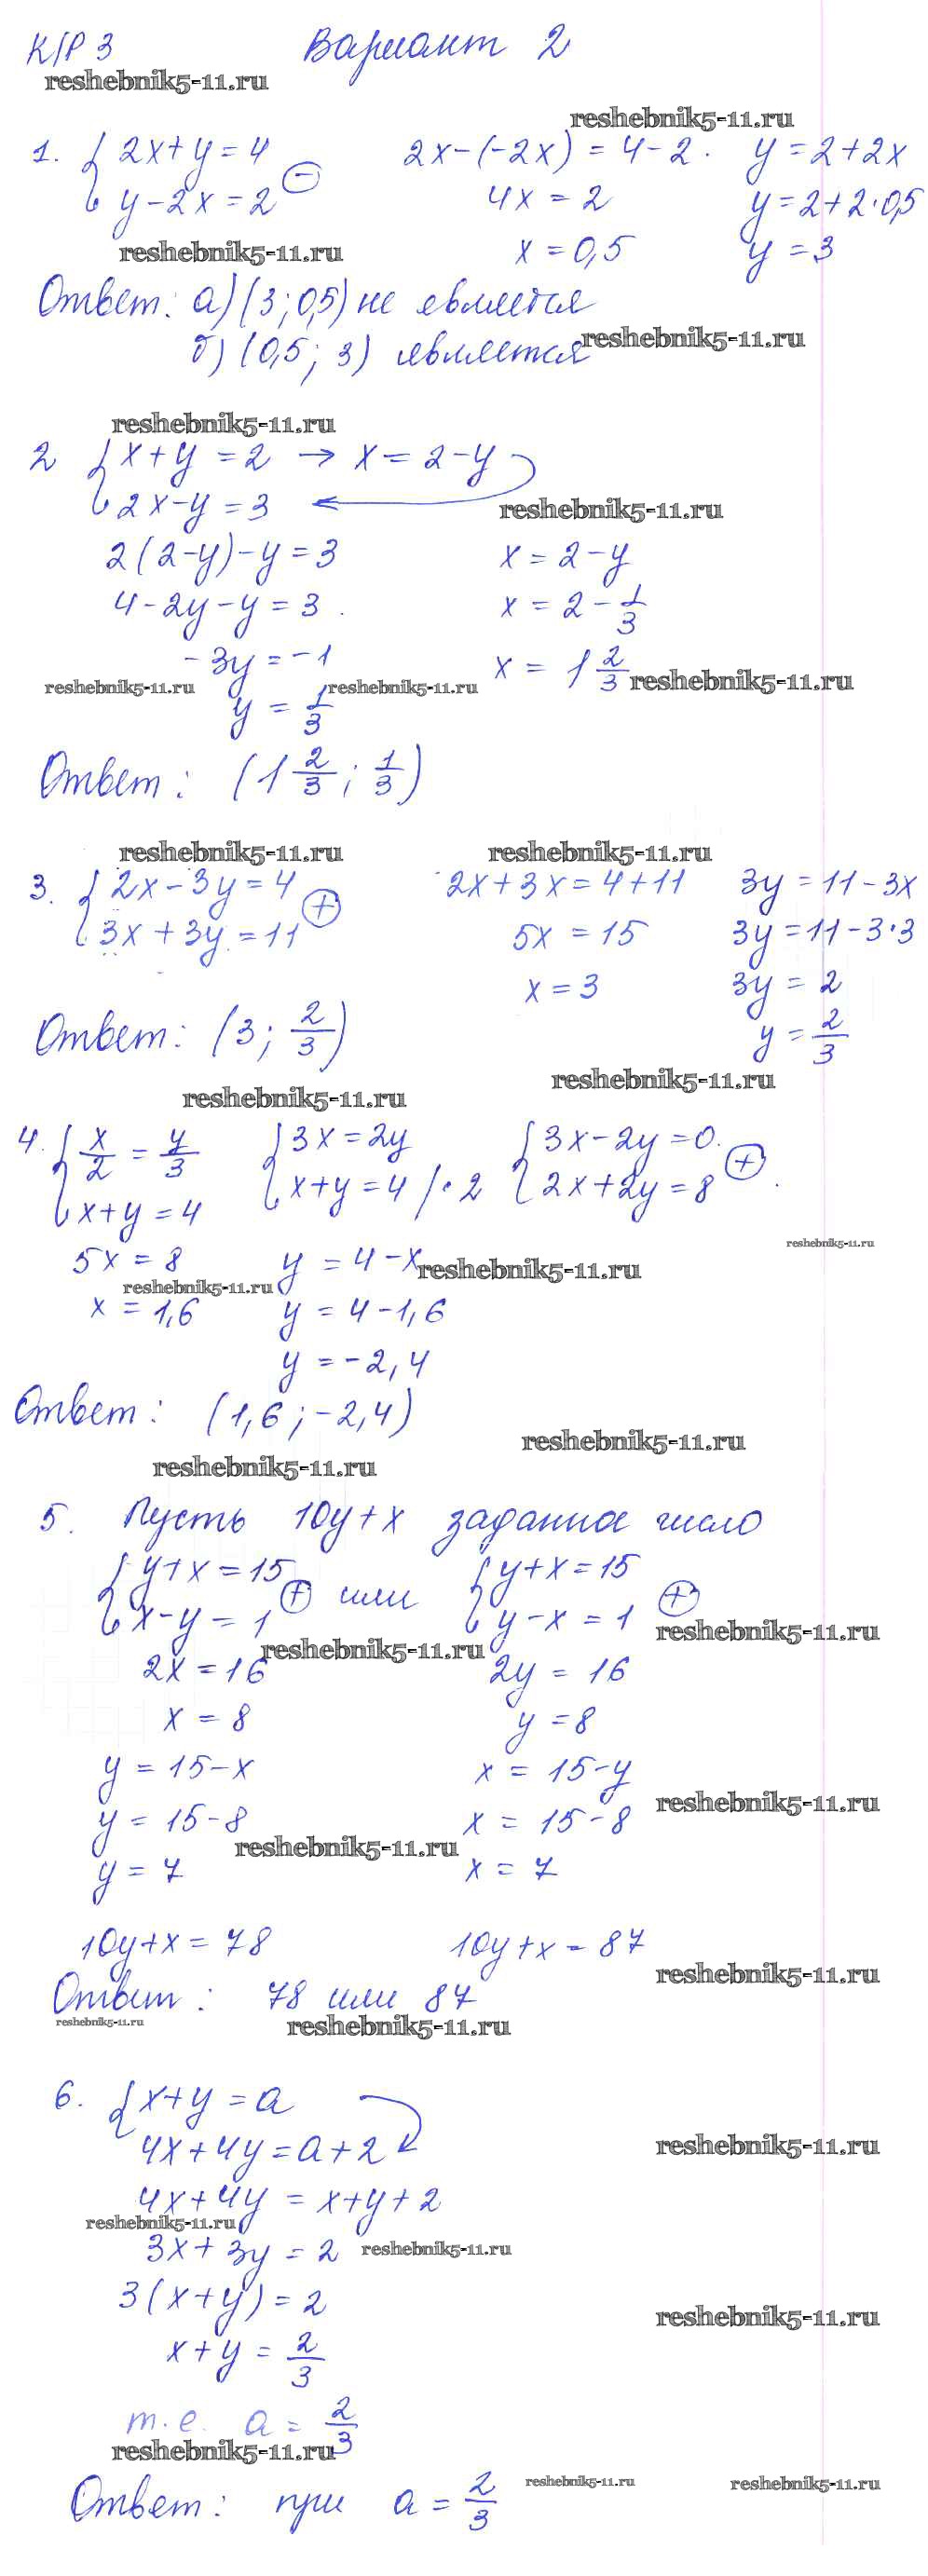 К/Р 3 Вариант 2
reshebnik5-11.ru
reshebnik5-11.ru
1. { 2x+y=4 2x-(-2x)=4-2. y=2+2x
y-2x=2 (-) 4x=2 y=2+2·0,5
reshebnik5-11.ru x=0,5 y=3
Ответ: а) (3; 0,5) не является
б) (0,5; 3) является
reshebnik5-11.ru
reshebnik5-11.ru
2 { x+y=2 → x=2-y
2x-y=3 ←
reshebnik5-11.ru
2(2-y)-y=3 x=2-y
4-2y-y=3. x=2-1/3
-3y=-1 x=1 2/3
reshebnik5-11.ru reshebnik5-11.ru reshebnik5-11.ru
y=1/3
Ответ: (1 2/3; 1/3)
reshebnik5-11.ru reshebnik5-11.ru
3. { 2x-3y=4 2x+3x=4+11 3y=11-3x
3x+3y=11 (+) 5x=15 3y=11-3·3
x=3 3y=2
Ответ: (3; 2/3) y=2/3
reshebnik5-11.ru
reshebnik5-11.ru
4. { x/2=y/3 { 3x=2y { 3x-2y=0.
x+y=4 x+y=4 /·2 2x+2y=8 (+).
reshebnik5-11.ru
5x=8 y=4-x
reshebnik5-11.ru
reshebnik5-11.ru
x=1,6 y=4-1,6
y=-2,4
Ответ: (1,6; -2,4)
reshebnik5-11.ru
reshebnik5-11.ru
5. Пусть 10y+x заданное число
{ y+x=15 (+) или { y+x=15 (+)
x-y=1 y-x=1
reshebnik5-11.ru
reshebnik5-11.ru
2x=16 2y=16
x=8 y=8
y=15-x x=15-y
reshebnik5-11.ru
y=15-8 x=15-8
reshebnik5-11.ru
y=7 x=7
10y+x=78 10y+x=87
reshebnik5-11.ru
Ответ: 78 или 87
reshebnik5-11.ru reshebnik5-11.ru
6. { x+y=a
4x+4y=a+2
reshebnik5-11.ru
4x+4y=x+y+2
reshebnik5-11.ru
3x+3y=2 reshebnik5-11.ru
3(x+y)=2
reshebnik5-11.ru
x+y=2/3
т.е. a=2/3
reshebnik5-11.ru
reshebnik5-11.ru reshebnik5-11.ru
Ответ: при a=2/3